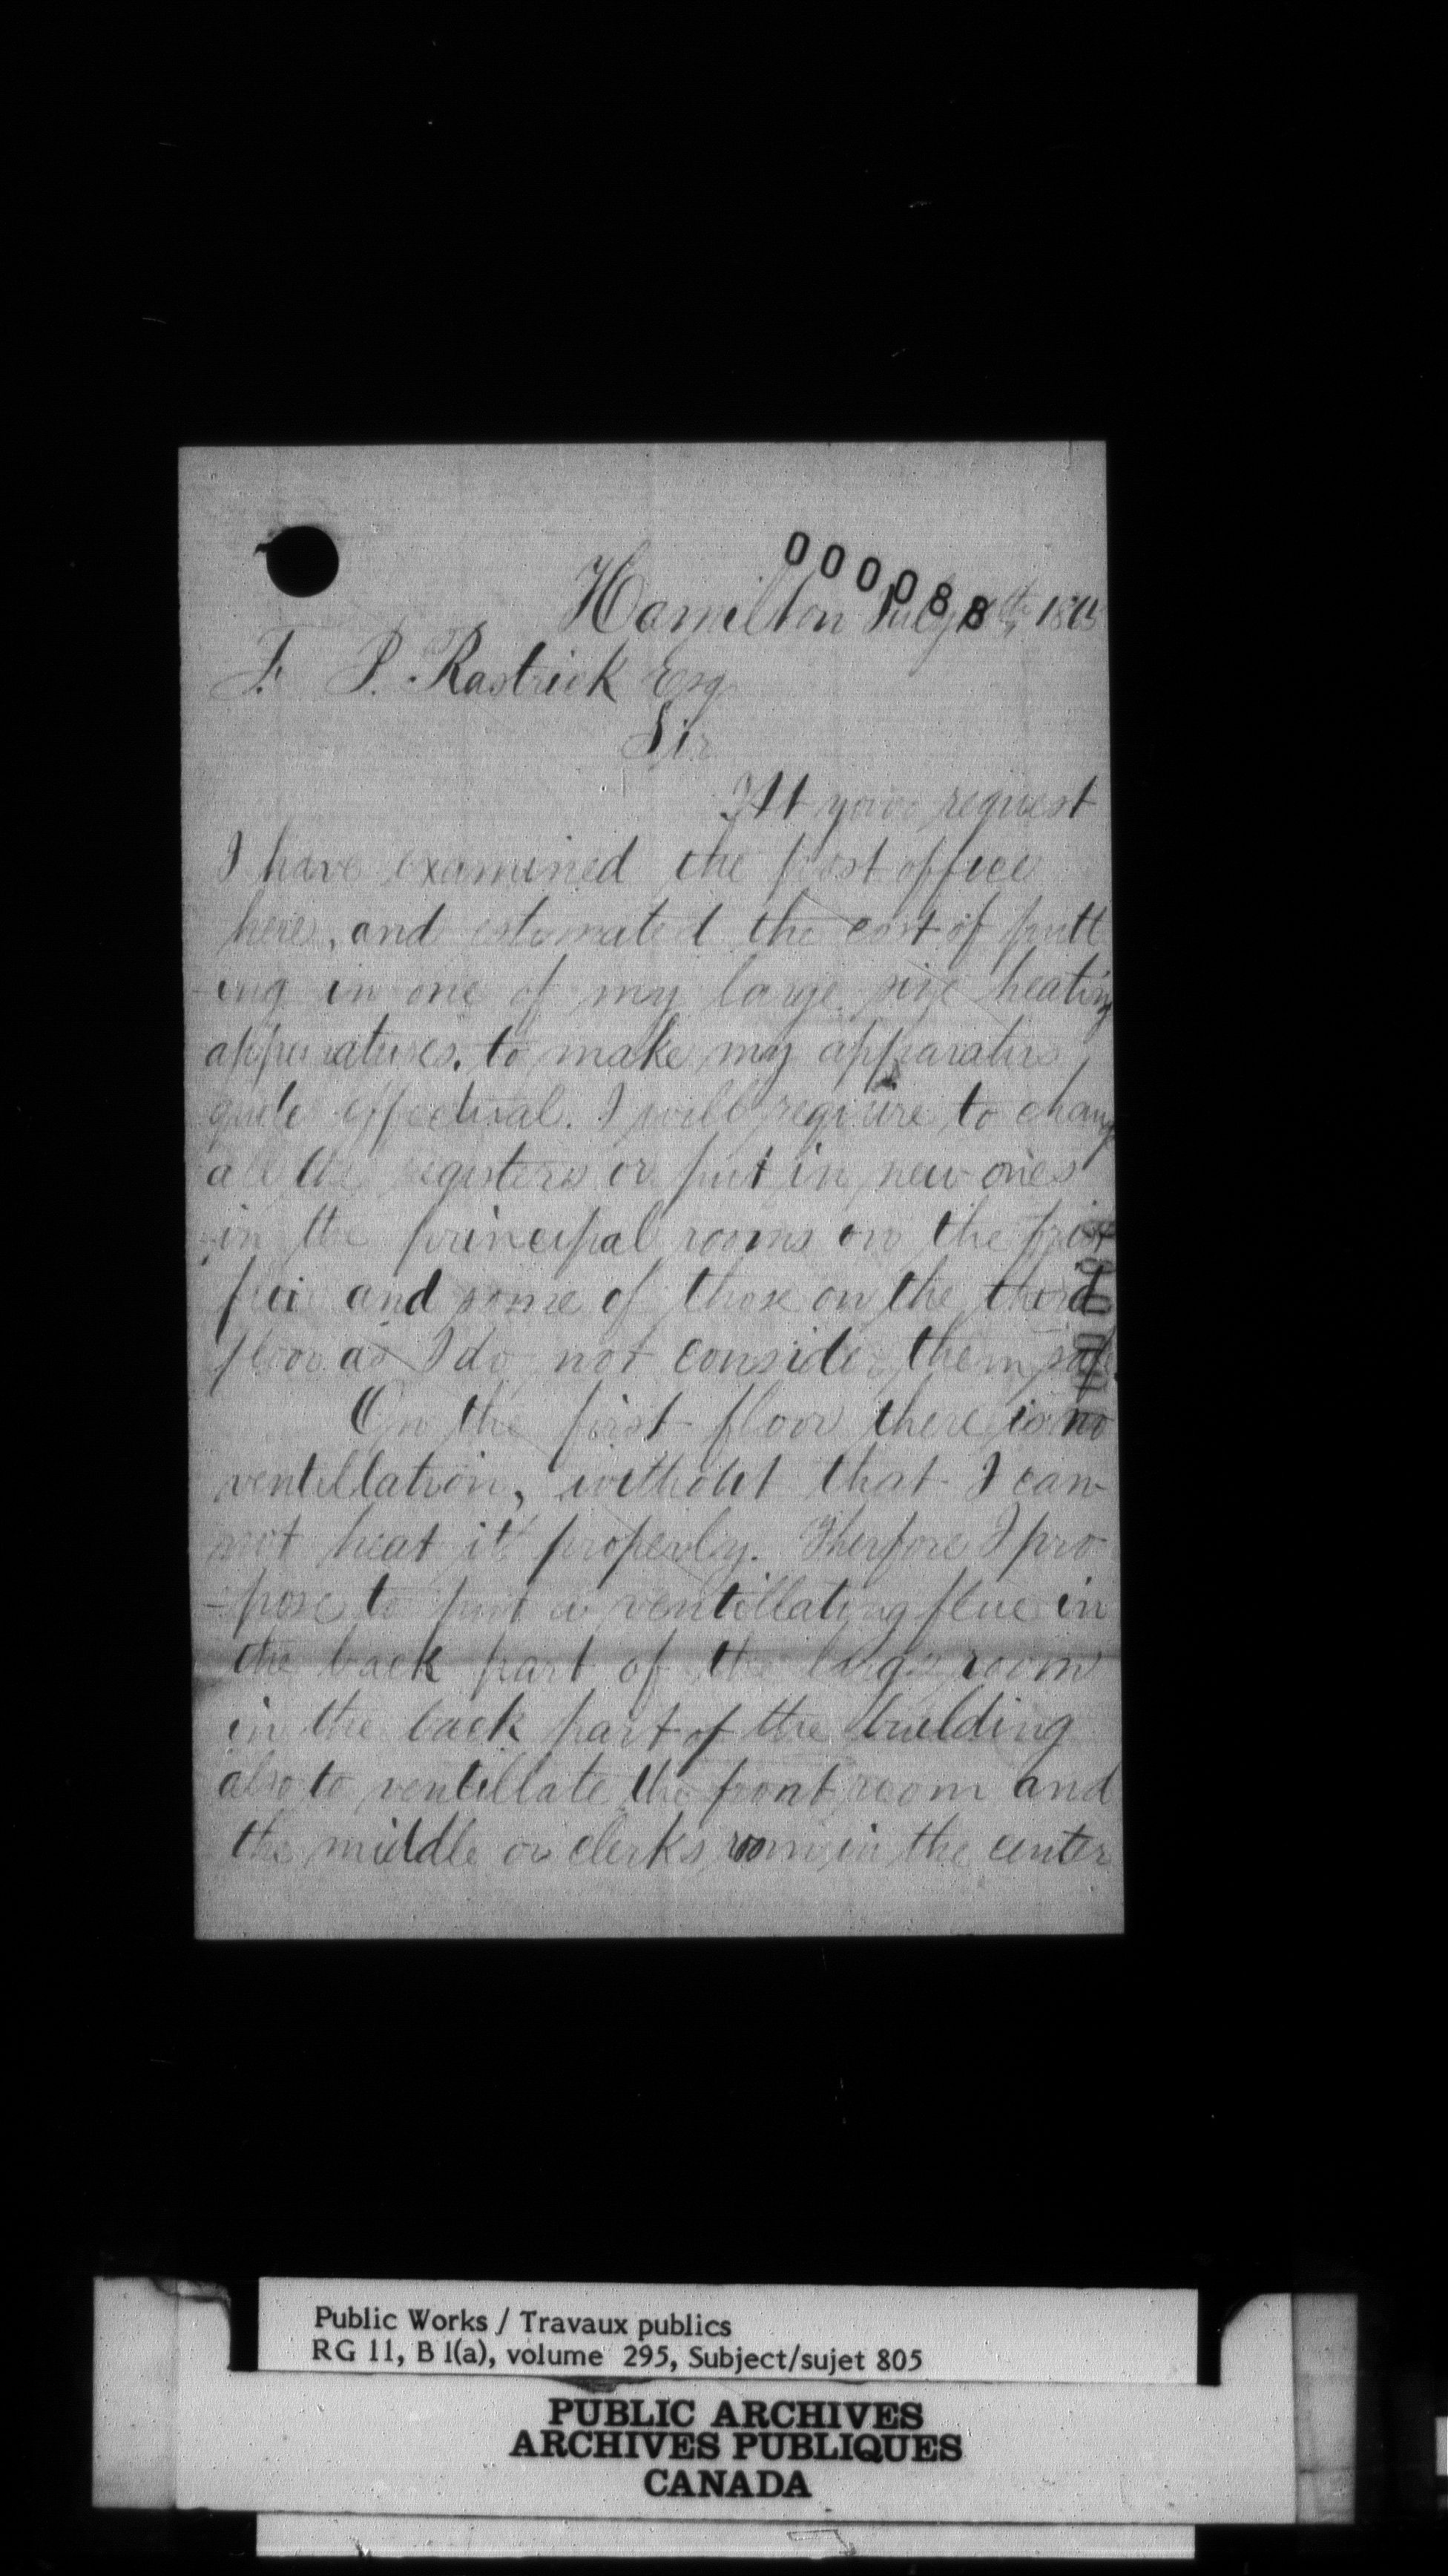 000088
Hamilton July
F. P. Rastrick Esq
Sir
At your request
I have examined the post office
here, and estomated the cost of putt
-ing in one of my large size heating
apparatuses. to make my apparatus
quite effectual. I will require to change
all the registers or put in new ones
in the principal rooms on the first
floor and some of those on the third
floor as I do not consider them safe
On the first floor there is no
ventillation, without that I can-
not heat it properly. Therfore I pro
-pose to put a ventillating flue in
the back part of the large room
in the back part of the building
also to ventillate the front room and
the middle or clerks room in the center
Public Works / Travaux publics
RG 11, B 1(a), volume 295, Subject/sujet 805
PUBLIC ARCHIVES
ARCHIVES PUBLIQUES
CANADA